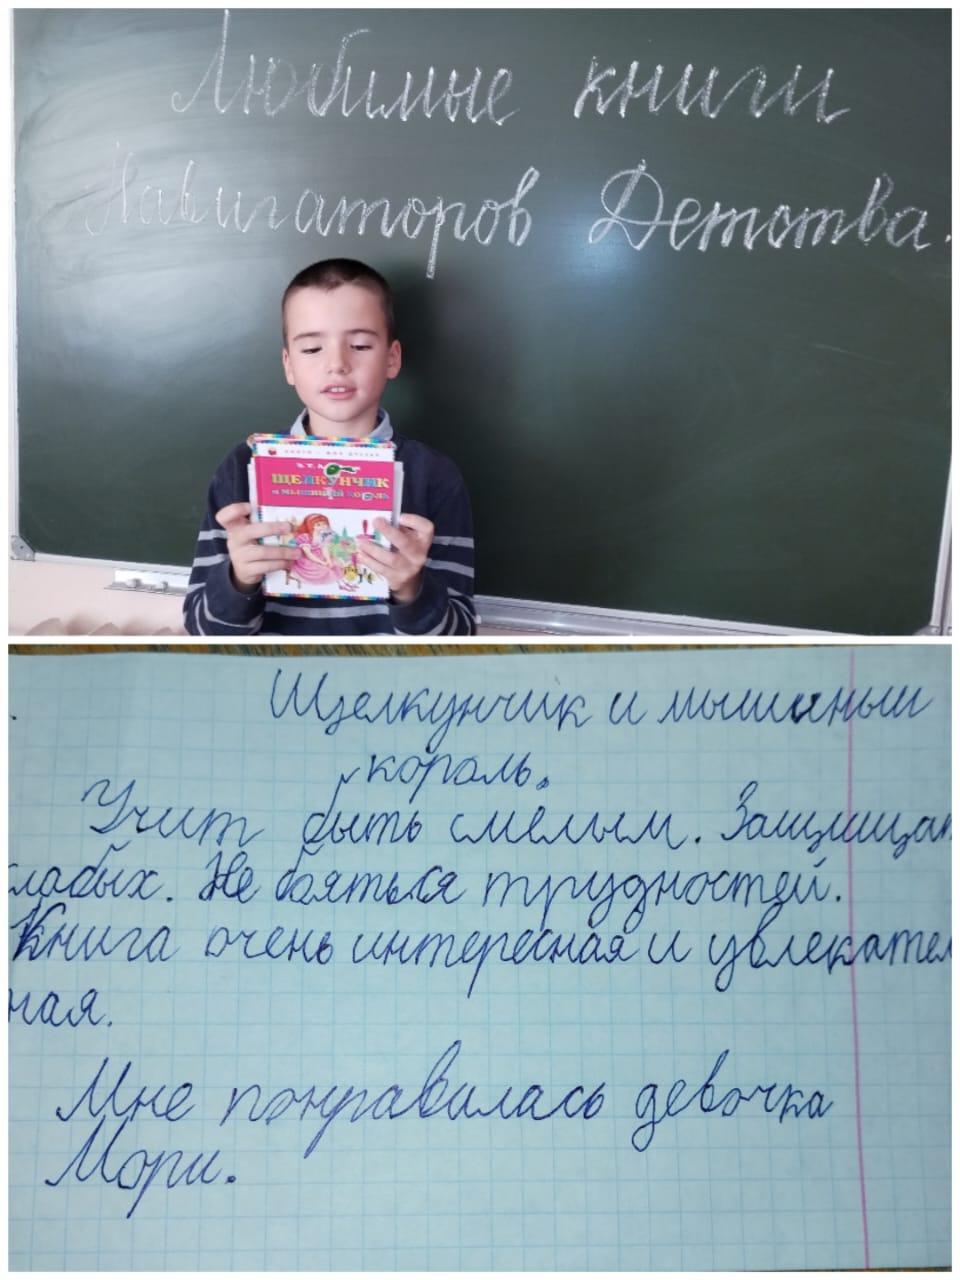 Любимые книги
Навигаторов Детства.
КНИГИ - МОИ ДРУЗЬЯ
ЩЕЛКУНЧИК
И МЫШИНЫЙ КОРОЛЬ
Щелкунчик и мышиный
король.
Учит быть смелым. Защищат
слабых. Не бояться трудностей.
Книга очень интересная и увлекател
ная.
Мне понравилась девочка
Мори.